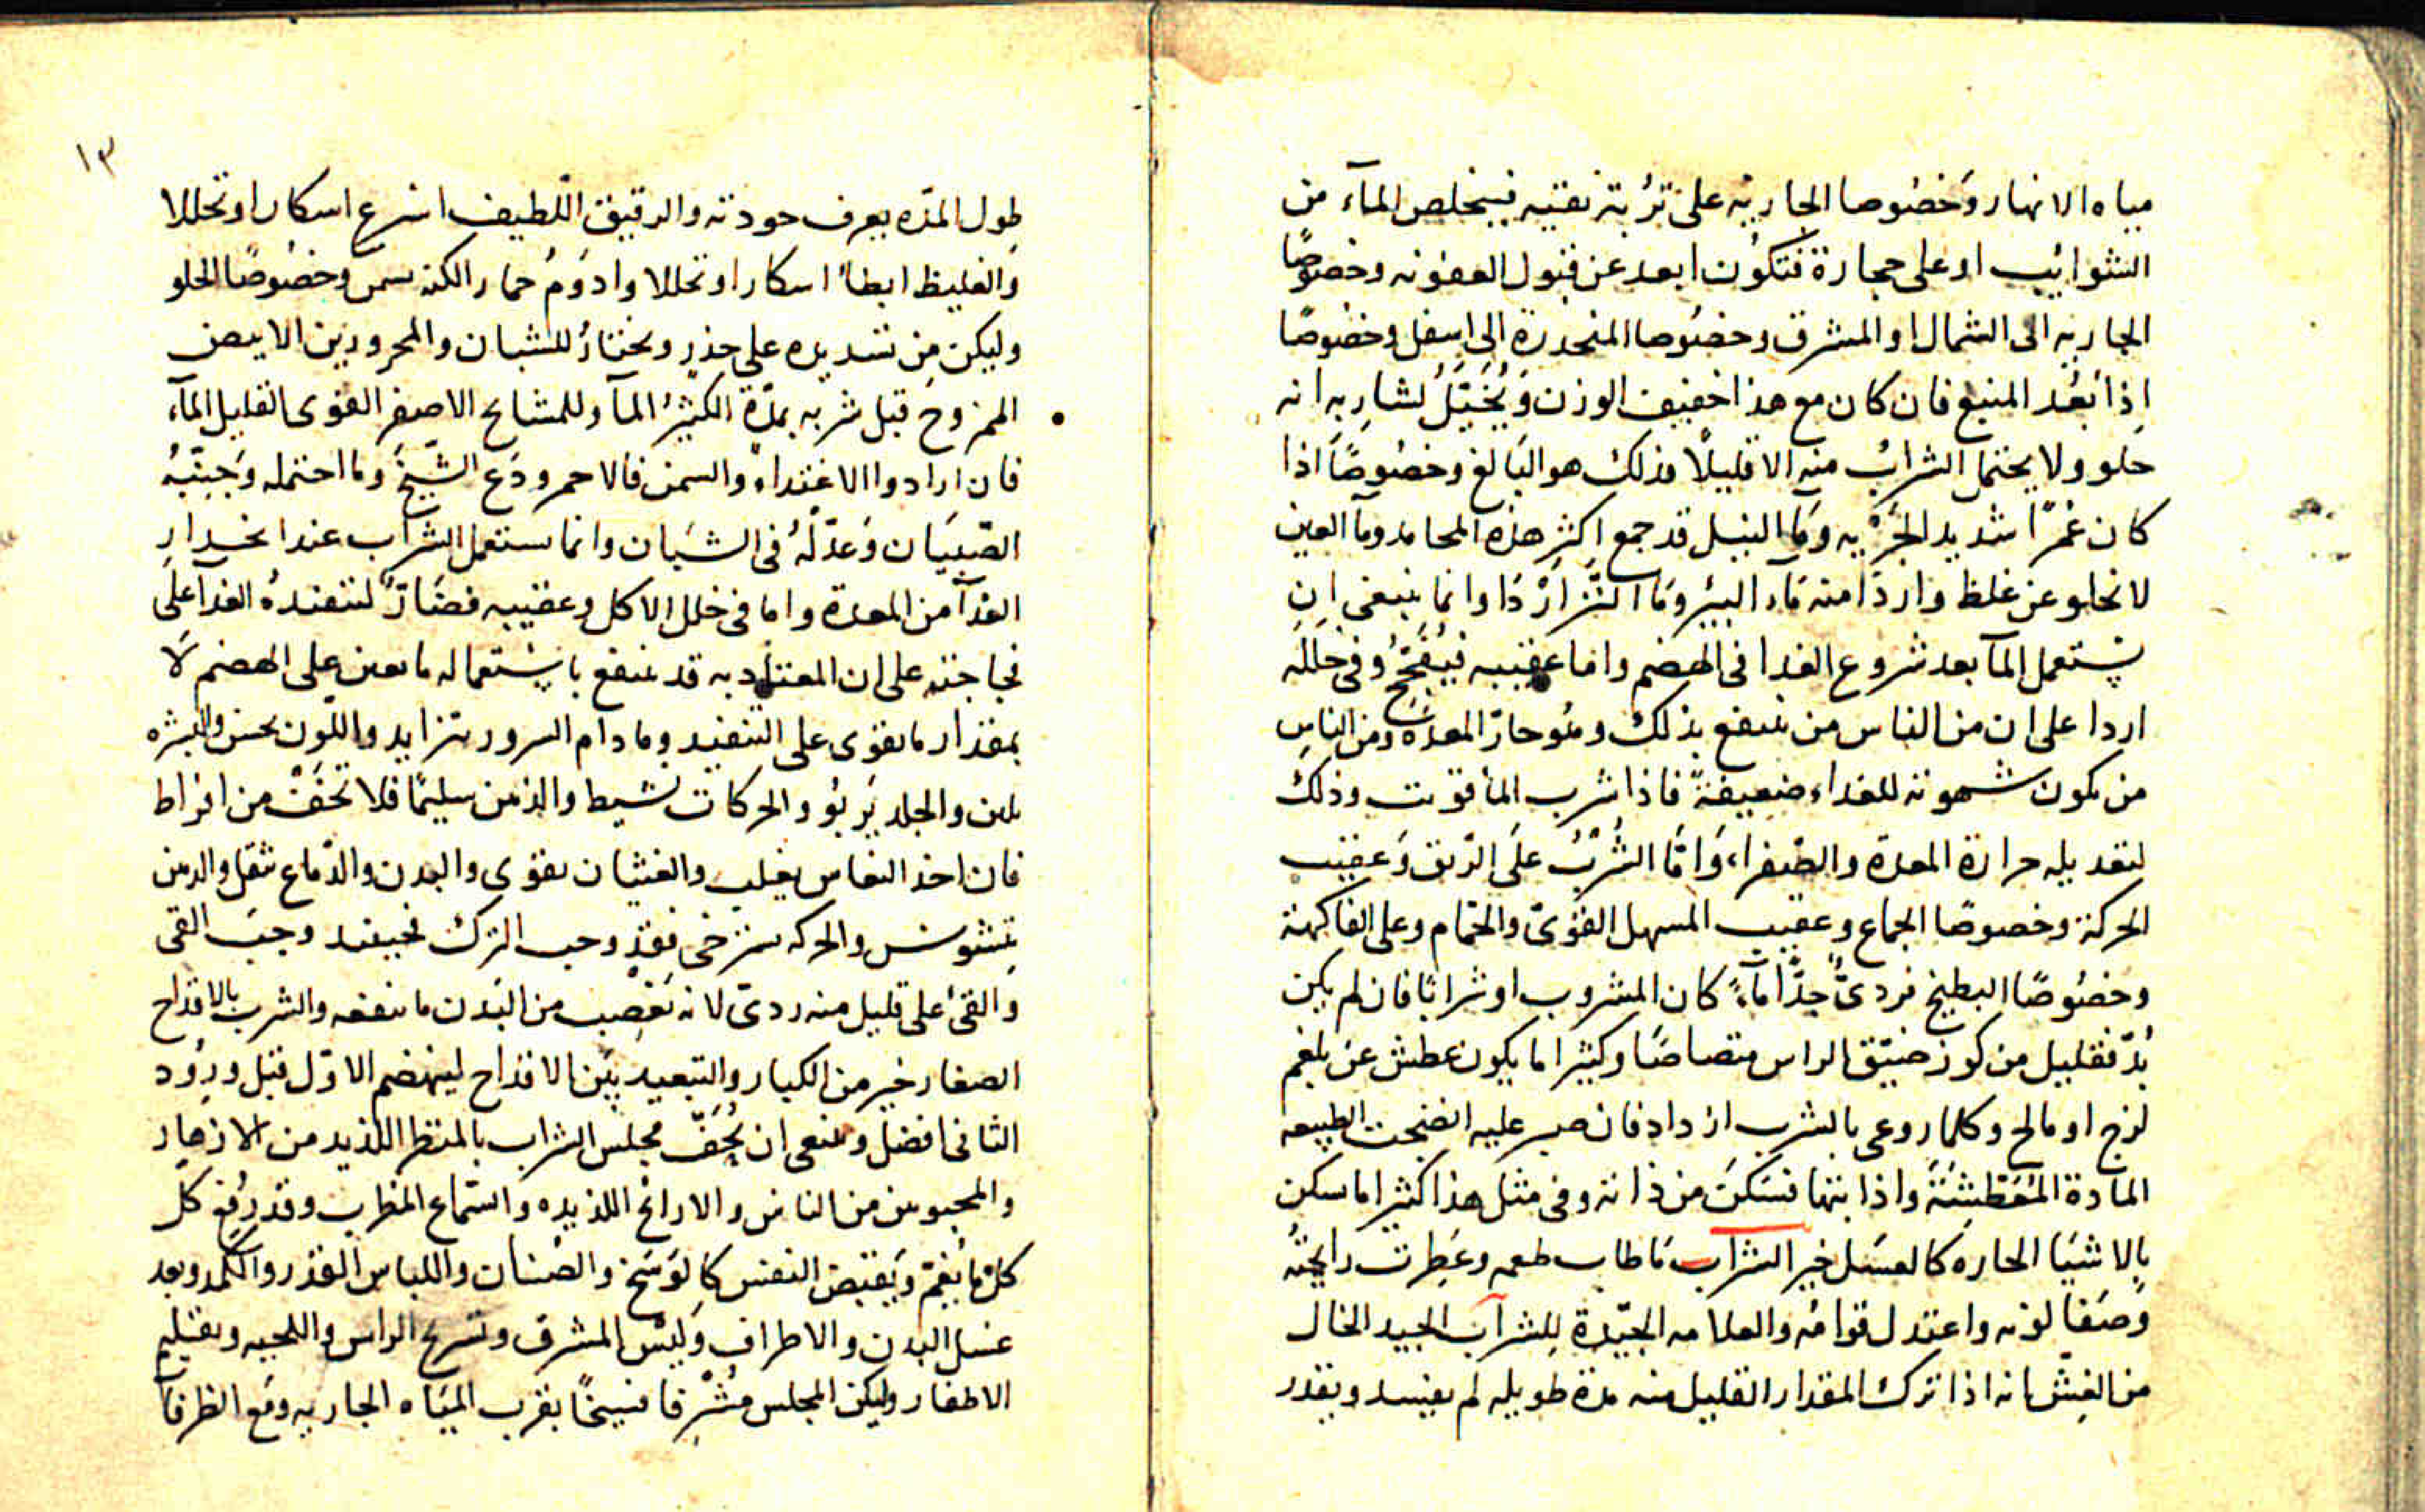 مياه الانهار وخصوصا الجاريه على تربة نقيه فيتخلص المآء من
الشوائب او على حجارة فتكون ابعد عن قبول العفونه وخصوصًا
الجاريه الى الشمال او المشرق وخصوصا المنحدرة الى اسفل وخصوصا
اذا بَعُد المنبع فان كان مع هذا خفيف الوزن وَيُخَيّلُ لشاربه انه
حلو ولا يحتمل الشرابُ منه الا قليلًا فذلك هو البَالغ وخصُوصًا اذا
كان غمرًا شديد الجَرْيه وَمآ النيل قد جمع اكثر هذه المحامد ومآ العين
لا تخلو عن غلظ واردَا منه مَاء البيئر وَمَا النَّزّ ارْدَا وانما ينبغى ان
يستعمل المآ بعد شروع الغدا فى الهضم واما عقيبه فيُفَجّجُ وفى خَلَله
اردا على ان من الناس من ينتفع بذلك وهُو حارّ المعده ومن الناس
من يكون شهوته للغداء ضعيفةً فاذا شرب المآ قويت وذلك
لتعديله حرارة المعدة والصفراء وَامَّا الشُرْبُ على الرّيق وَعقيب
الحركة وخصوصًا الجماع وعقيب المسهل القوىّ والحمّام وعلى الفاكهة
وخصُوصًا البطيخ فردىٌّ جدًّا مآءً كان المشروب او شرابًا فان لم يكن
بُدّ فقليل من كوز ضيّق الراس متصاصًا وكثيرا ما يكون عطش عن بلغم
لزج او مالح وكلما روعى بالشرب ازداد فان صبر عليه انضجت الطبيعه
المادة المُعَطّشَةَ واذابتها فسَكنَ من ذاته وفى مثل هذا كثيرا ما سكن
بالاشيَا الحاره كالعسَل خير الشرآب مَا طاب طعمه وعَطِرت رايحتُه
وَصَفا لونه واعتدل قوامُه والعلامه الجيّدة لِلشرآب الجيد الخال
من الغِشّ انه اذا ترك المقدار القليل منه مدة طويله لم يفسد وبقدر
١٣
طول المدّه يعرف جودته والرقيق اللّطيف اسْرع اسكارا وتحللا
وَالغليظ ابطأ اسكارا وتحللا وادوَمُ خمار الكنه يسمن وخصُوصًا الحلو
وليكن مِن تسديده على حذرٍ ونختارُ للشبان والمحرورين الابيض
الممزوج قبل شربه بمدّة الكثيرُ المآ وللمشايخ الاصفر القوى القليل المآء
فان ارادوا الاغتداء والسمن فالاحمر ودَع الشّيخَ وما احتمله وَجنّبْهُ
الصّبيَان وَعدّلْهُ فى الشبَان وانما يستعمل الشرآب عند انحدار
الغدآ من المعدة واما فى خلل الاكل وعقيبه فضَارٌّ لتنفيدهُ الغدآ على
فجاجته على ان المعتاد به قد ينتفع باستعماله ما يعين على الهضم لا
بمقدار ما يقوى على التنفيد وما دام السرور يتزايد واللّون يحسن والبشره
يلين والجلد يَربُو والحركات نشيط والذهن سليمًا فلا تخَفْ من افراط
فان اخذ النعاس يغلب والغثيان يقوى والبدن والدّماغ ثقل والدهن
يتشوش والحركه يسترخى فقد وجب الترك فحينئد وجبَ القى
والقئ على قليل منه ردىّ لانه يغصب من البَدن ما ينفعه والشرب بالاقداح
الصغار خير من الكبار والتبعيد بَيْن الاقداح لينهضم الاوّل قبل ورُود
الثانى افضل وينبغى ان يُحَفّ مجلس الشراب بالمنظر اللذيد من الازهار
والمحبوبين من الناس والارايح اللذيده واستماع المطرب وقد رُفِع كلّ
كلّ ما يُغمّ وَيَقبض النفس كالوَسَخ والصُنان واللباس القذر والكمد وبعد
غسل البدن والاطراف وَلبس المشرق وتسرح الراس واللحيه وتقليم
الاظفار وليكن المجلس مُشْرِقا فسيحًا بقرب الميَاه الجاريه ومَع الظرفآ